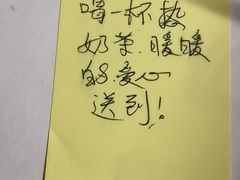 喝一杯热
奶茶.暖暖
的.爱心
送到!